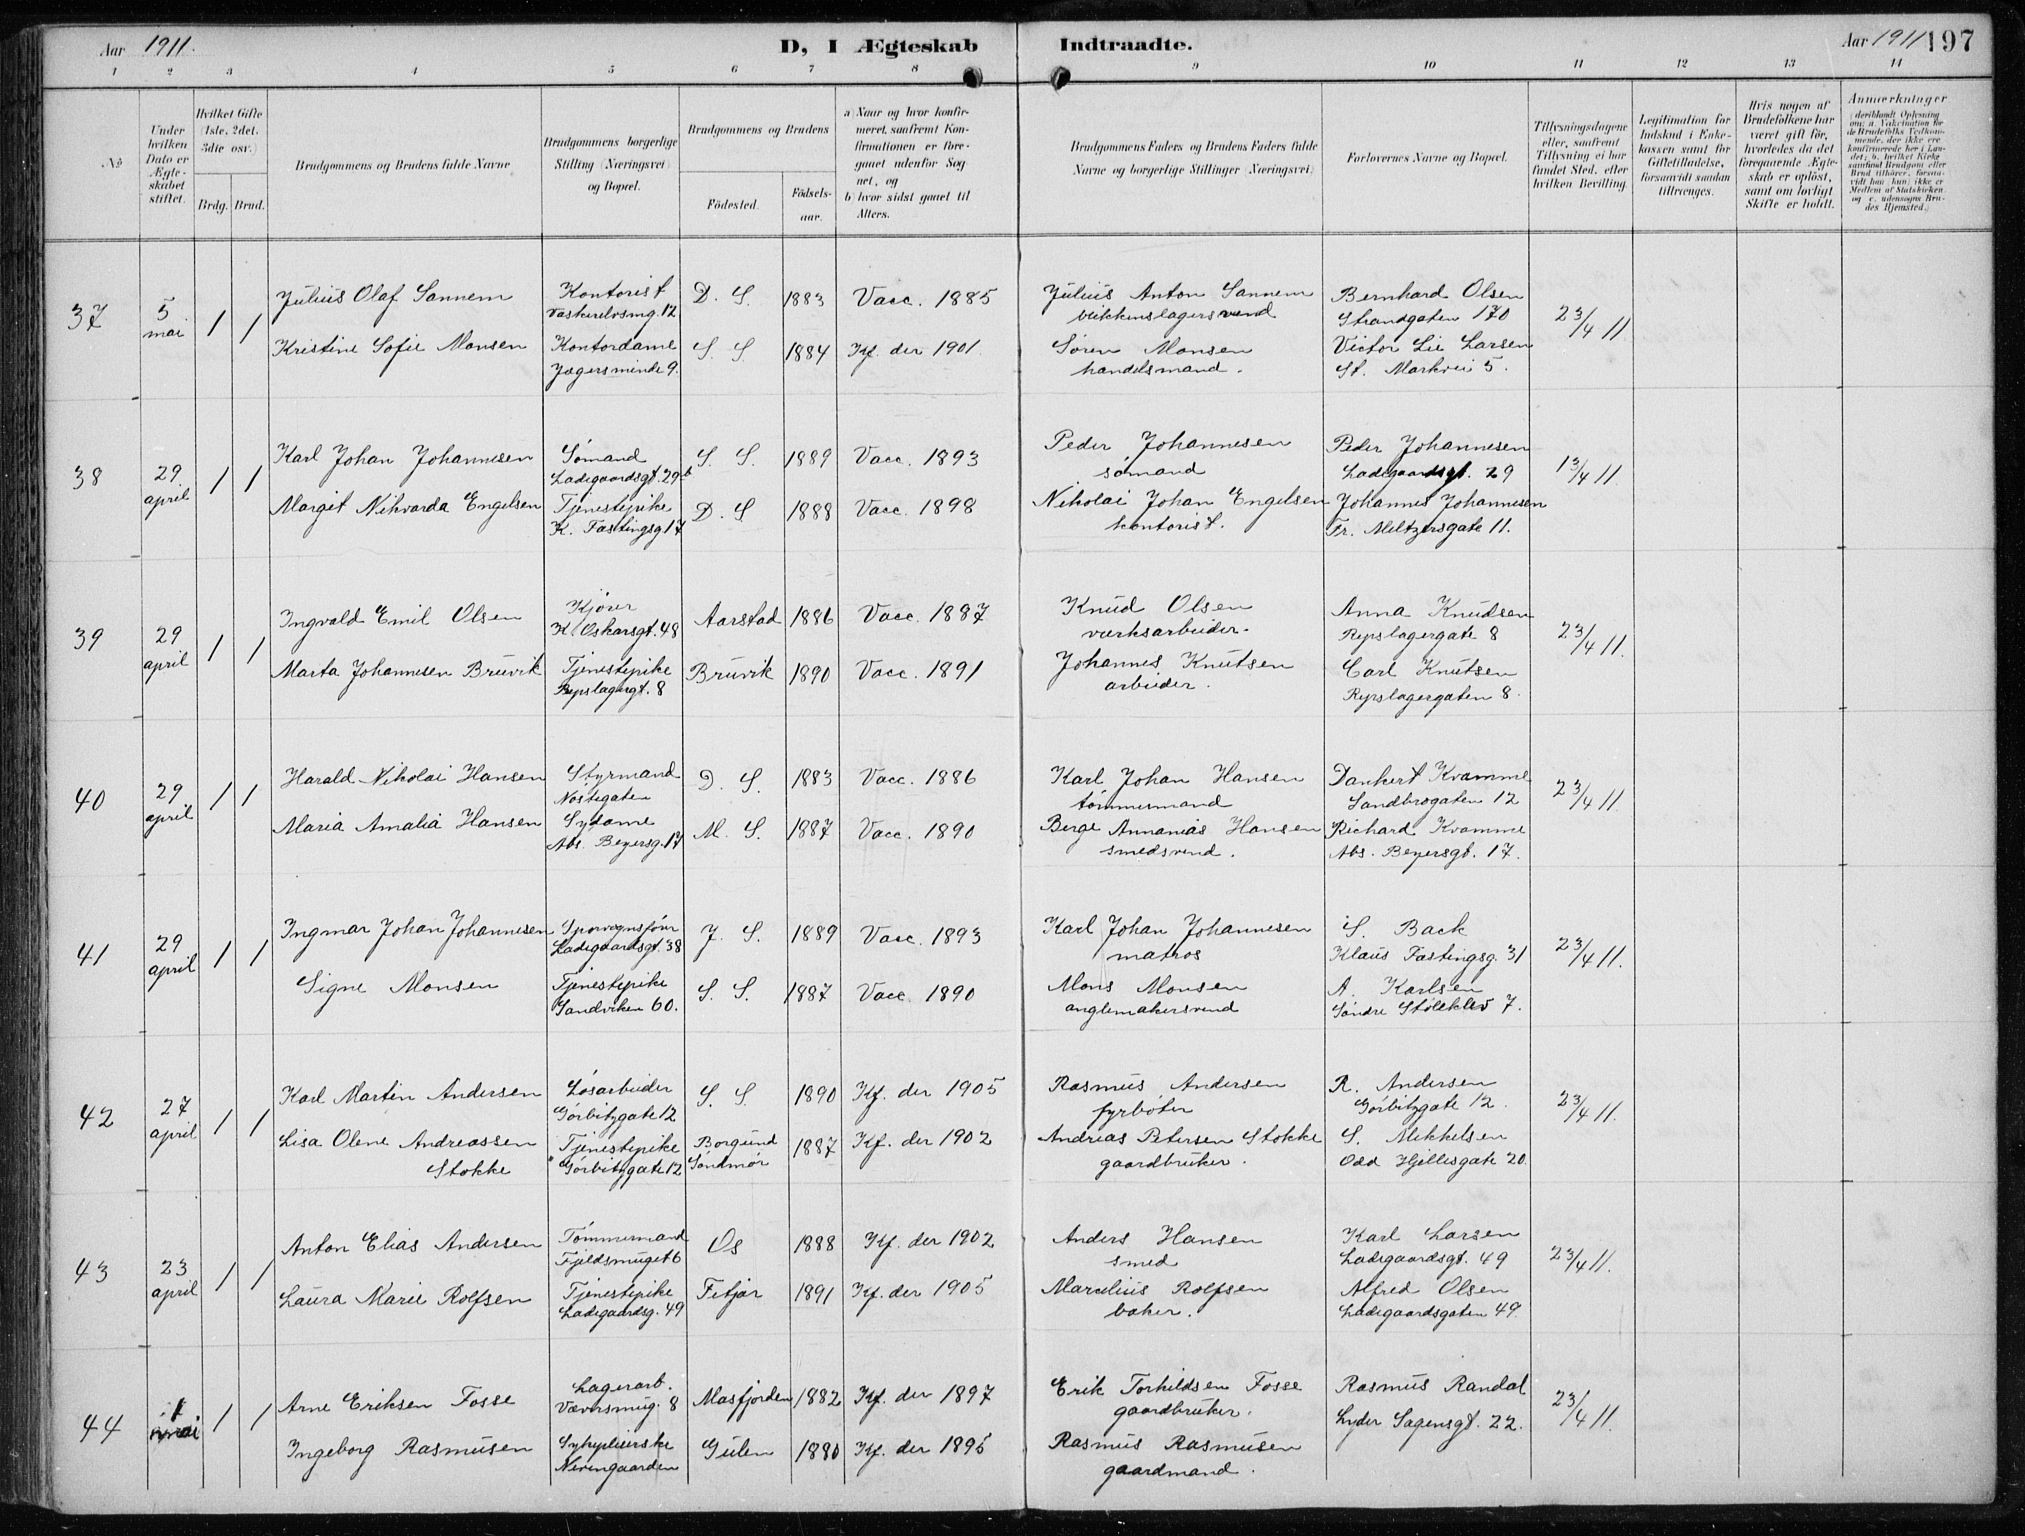 Aar 1911. D, I Ægteskab Indtraadte. Aar 1911 197
1 2 3 4 5 6 7 8 9 10 11 12 13 14
No
Under hvilken Dato er Ægteskabet stiftet.
Hvilket Gifte 1ste, 2det, 3die osv.)
Brdg. Brud.
Brudgommens og Brudens fulde Navne
Brudgommens borgerlige Stilling (Næringsvei) og Bopæl.
Brudgommens og Brudens
Födested. Födselsaar.
a) Naar og hvor konfirmeret, saafremt Konfirmationen er foregaaet udenfor Sognet, og
b) hvor sidst gaaet til Alters.
Brudgommens Faders og Brudens Faders fulde Navne og borgerlige Stillinger (Næringsvei)
Forlovernes Navne og Bopæl.
Tillysningsdagene eller, saafremt Tillysning ei har fundet Sted, efter hvilken Bevilling.
Legitimation for Indskud i Enkekassen samt for Giftetilladelse, forsaavidt saadan tiltrænges.
Hvis nogen af Brudefolkene har været gift för, hvorledes da det foregaaende Ægteskab er oplöst, samt om lovligt Skifte er holdt.
Anmærkninger
37 5 mai 1 1
Julius Olaf Sannem Kontorist D. S. 1883 Vacc. 1885 Julius Anton Sannem Bernhard Olsen 23/4 11
Vaskerelvsmg. 12 blikkenslagersvend Strandgaten 170
Kristine Sofie Monsen Kontordame S. S 1884 Kf. der 1901. Søren Monsen Victor Lie Larsen
Jægersminde 9. handelsmand. St. Markvei 5.
38 29 april 1 1
Karl Johan Johannesen Sømand S. S. 1889 Vacc. 1893 Peder Johannesen Peder Johannesen 13/4 11.
Ladegaardsgt. 29b sømand Ladegaardsgt. 29
Margit Nikvarda Engelsen Tjenestepike D. S 1888 Vacc. 1898 Nikolai Johan Engelsen Johannes Johannesen
K. Fastingsg 17 kontorist. Fr. Meltzersgate 11.
39 29 april 1 1
Ingvald Emil Olsen Kjører Aarstad 1886 Vacc. 1887 Knud Olsen Anna Knudsen 23/4 11.
K. Oskarsgt. 48 verksarbeider. Repslagergate 8
Marta Johannesen Bruvik Tjenestepike Bruvik 1890 Vacc. 1891 Johannes Knutsen Carl Knutsen
Repslagergt. 8 arbeider. Repslagergaten 8.
40 29 april 1 1
Harald Nikolai Hansen Styrmand D. S. 1883 Vacc. 1886 Karl Johan Hansen Dankert Kvamme 23/4 11.
Nøstegaten tømmermand Sandbrogaten 12
Maria Amalia Hansen Sydame M. S. 1887 Vacc. 1890 Berge Annanias Hansen Richard Kvamme
Abs. Beyersg. 17 smedsvend. Abs. Beyersgt. 17.
41 29 april 1 1
Ingmar Johan Johannesen Sporvognsfører J. S. 1889 Vacc. 1893 Karl Johan Johannesen S. Back 23/4 11.
Ladegaardsgt. 38 matros Klaus Fastingsg. 31
Signe Monsen Tjenestepike S. S. 1887 Vacc. 1890 Mons Monsen A. Karlsen
Sandviken 60. anglemakersvend Søndre Støleklev 7.
42 27 april 1 1
Karl Martin Andersen Løsarbeider S. S 1890 Kf. der 1905 Rasmus Andersen R. Andersen 23/4 11.
Gørbitzgate 12 fyrbøter Gørbitzgate 12.
Lisa Olene Andreassen Tjenestepike Borgund 1887 Kf. der 1902 Andreas Petersen Stokke S. Mikkelsen
Stokke Gørbitzgate 12 Søndmør gaardbruker. Odd Hjellesgate 20.
43 23 april 1 1
Anton Elias Andersen Tømmermand Os 1888 Kf. der 1902 Anders Hansen Karl Larsen 23/4 11.
Fjeldsmuget 6 smed Ladegaardsgt. 49
Laura Marie Rolfsen Tjenestepike Fitjar 1891 Kf. der 1905 Marselius Rolfsen Alfred Olsen
Ladegaardsg. 49 baker. Ladegaardsgaten 49.
44 1 mai 1 1
Arne Eriksen Fosse Lagerarb. Masfjorden 1882 Kf. der 1897 Erik Torkildsen Fosse Rasmus Randal 23/4 11.
Væversmug. 8 gaardbruker. Lyder Sagensgt. 22.
Ingeborg Rasmusen Sykepleierske Gulen 1880 Kf. der 1895 Rasmus Rasmusen
gaardmand.